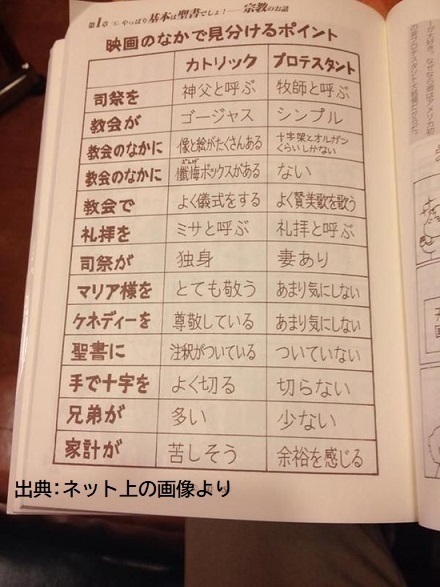 第1章 やっぱり基本は聖書でしょ！──宗教のお話
映画のなかで見分けるポイント
カトリック プロテスタント
司祭を 神父と呼ぶ 牧師と呼ぶ
教会が ゴージャス シンプル
教会のなかに 像と絵がたくさんある 十字架とオルガンくらいしかない
教会のなかに 懺悔ボックスがある ない
ざんげ
教会で よく儀式をする よく賛美歌を歌う
礼拝を ミサと呼ぶ 礼拝と呼ぶ
司祭が 独身 妻あり
マリア様を とても敬う あまり気にしない
ケネディーを 尊敬している あまり気にしない
聖書に 注釈がついている ついていない
手で十字を よく切る 切らない
兄弟が 多い 少ない
家計が 苦しそう 余裕を感じる
出典：ネット上の画像より